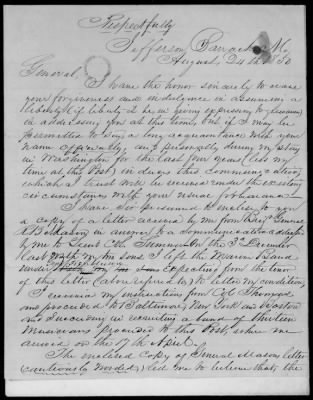 Respectfully
Jefferson Barracks Mo
August 24th 1850
General,
I have the honor sincerely to crave
your forgiveness and indulgence in assuming a
liberty (if liberty it be in giving expression to)
in addressing you at this time, but if I may be
permitted to say a long acquaintance with your
name officially, and personally during my stay
in Washington for the last four years (less my
time at this Post) induces this communication
which I trust will be received under the existing
circumstances with your usual forbearance.
I have Sir presumed to enclose to you
a copy of a letter received by me from
in answer to a communication
by me to Genl on the 3rd December
last I left the Marine Band
under expecting from the tenor
of this letter (above referred to)
I received my instructions from Col
and proceeded to Baltimore, New York and Boston
and succeeded in recruiting a band of thirteen
Musicians proceeded to this Post, where we
arrived on the 17th April.
The enclosed copy of General letter
(cautiously worded) led me to believe that the